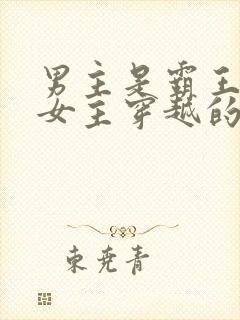 男主是霸王
女主穿越的
束尧青